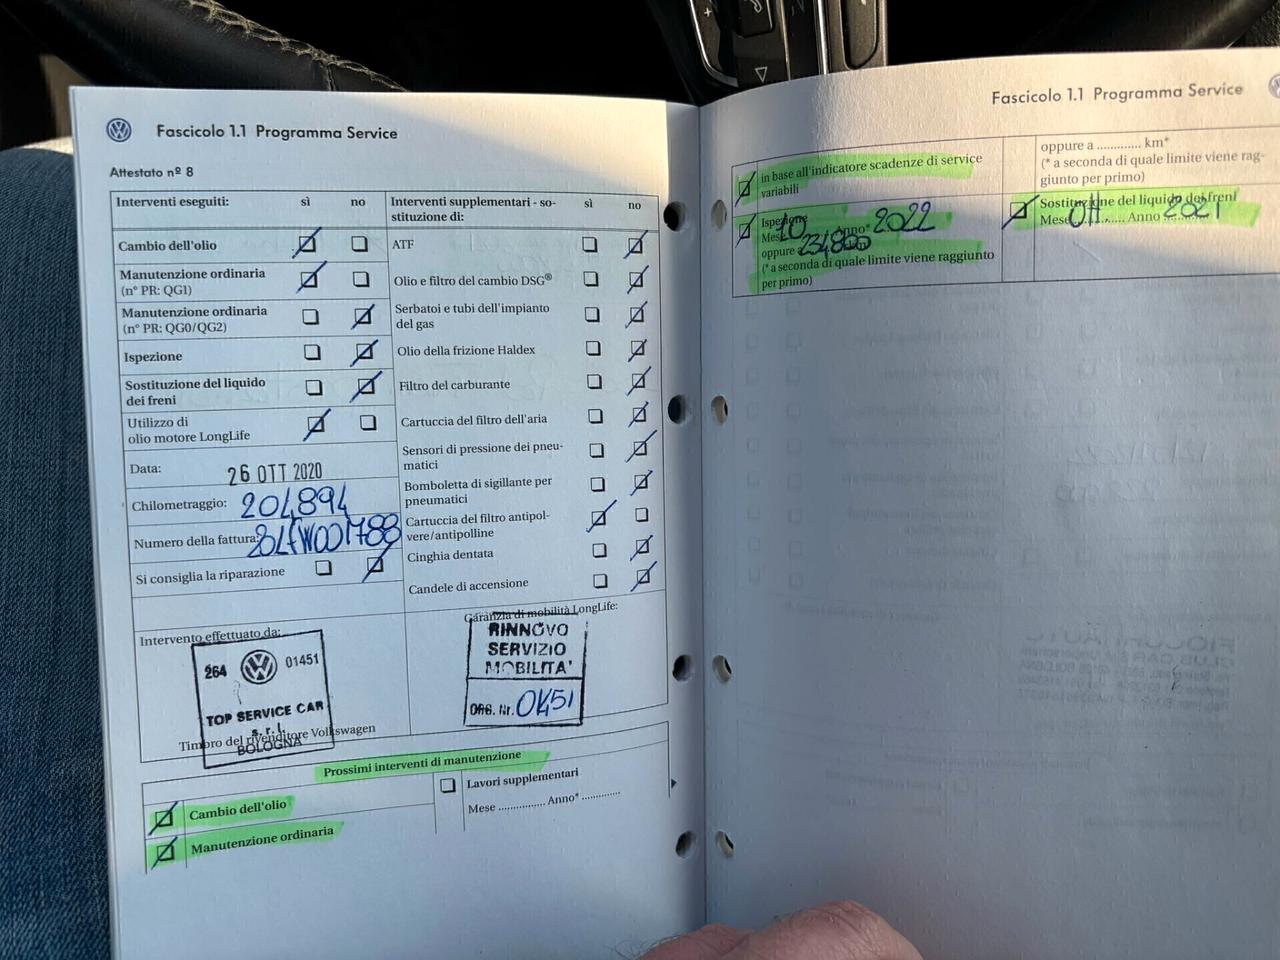 Fascicolo 1.1 Programma Service
Attestato nº 8
Interventi eseguiti: sì no
Cambio dell'olio
Manutenzione ordinaria
(nº PR: QG1)
Manutenzione ordinaria
(nº PR: QG0/QG2)
Ispezione
Sostituzione del liquido
dei freni
Utilizzo di
olio motore LongLife
Data: 26 OTT 2020
Chilometraggio: 204894
Numero della fattura:
Si consiglia la riparazione
Interventi supplementari - so-
stituzione di: sì no
ATF
Olio e filtro del cambio DSG®
Serbatoi e tubi dell'impianto
del gas
Olio della frizione Haldex
Filtro del carburante
Cartuccia del filtro dell'aria
Sensori di pressione dei pneu-
matici
Bomboletta di sigillante per
pneumatici
Cartuccia del filtro antipol-
vere/antipolline
Cinghia dentata
Candele di accensione
Intervento effettuato da:
264 01451
TOP SERVICE CAR
s.r.l.
BOLOGNA
Timbro del rivenditore Volkswagen
Garanzia di mobilità LongLife:
RINNOVO
SERVIZIO
MOBILITA'
ORG. Nr.
Prossimi interventi di manutenzione
Cambio dell'olio
Manutenzione ordinaria
Lavori supplementari
Mese ................ Anno* .............
Fascicolo 1.1 Programma Service
in base all'indicatore scadenze di service
variabili
Ispezione
Mese 10 Anno* 2022
oppure a 234800 km
(* a seconda di quale limite viene raggiunto
per primo)
oppure a ............. km*
(* a seconda di quale limite viene rag-
giunto per primo)
Sostituzione del liquido dei freni
Mese OTT Anno 2021